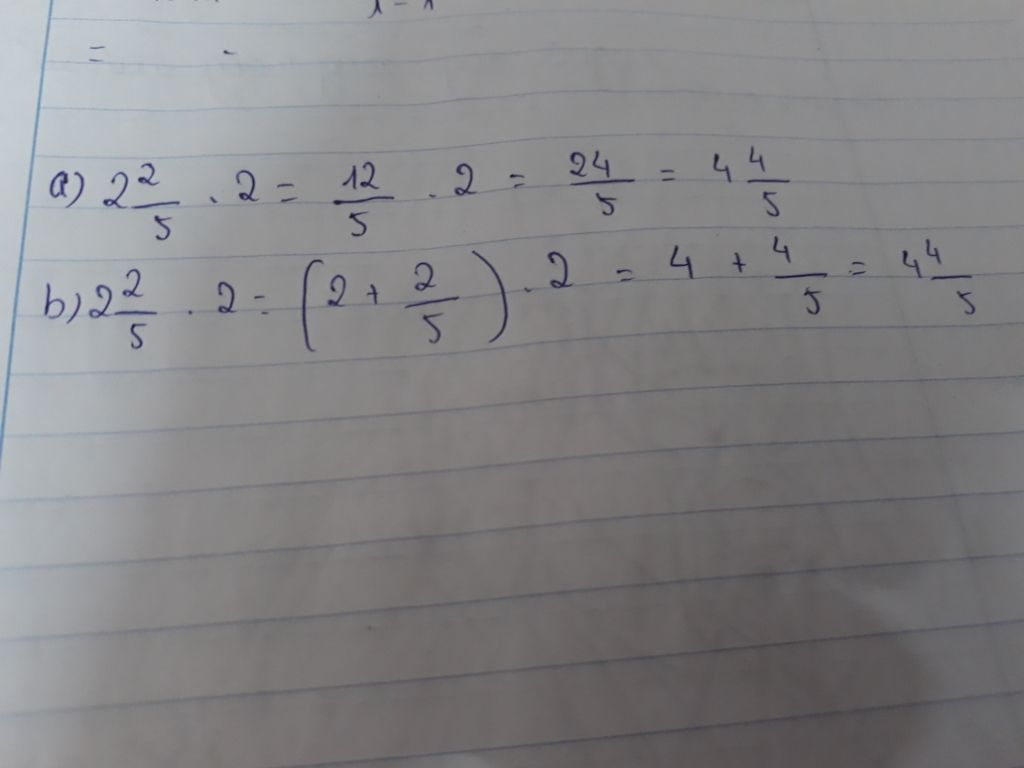 = -
a) 2 2/5 . 2 = 12/5 . 2 = 24/5 = 4 4/5
b) 2 2/5 . 2 = (2 + 2/5) . 2 = 4 + 4/5 = 4 4/5